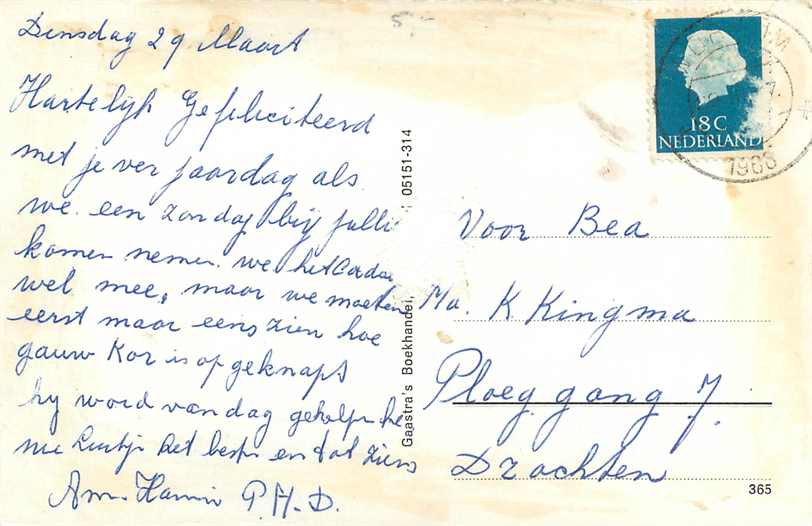 5,-
Densdag 29 Maart
Hartelijk Gefiliciteerd
met je ver jaardag als
we een zondag bij julli
komen nemen we het Cadau
wel mee, maar we moeten
eerst maar eens zien hoe
gauw Kor is op geknapt
hy word van dag
het beste en tot ziens
P.H.D.
Gaastra's Boekhandel, 05151-314
18C
NEDERLAND
196
Voor Bea
K Kingma
Ploeg gang 7.
Drachten
365